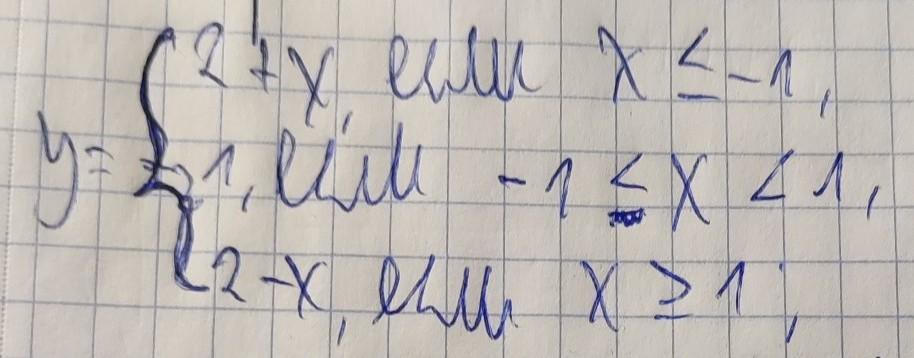 2+x, если x ≤ -1,
y= { 1, если -1 ≤ x < 1,
2-x, если x ≥ 1,